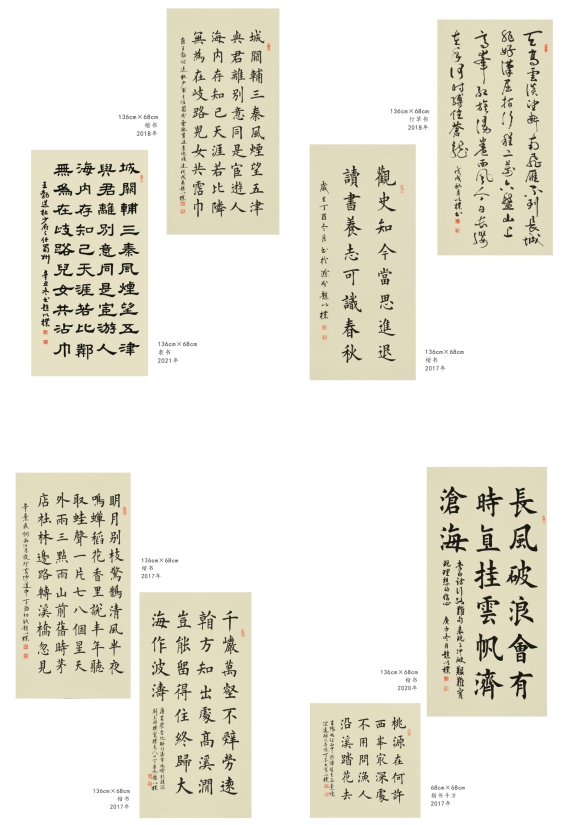 136cm×68cm
楷书
2018年
城闕輔三秦風煙望五津
與君離別意同是宦遊人
海內存知己天涯若比隣
無為在岐路兒女共霑巾
城闕輔三秦風煙望五津
與君離別意同是宦游人
海內存知己天涯若比鄰
無為在歧路兒女共沾巾
王勃送杜少府之任蜀州 辛丑冬書趙以樸
136cm×68cm
隶书
2021年
136cm×68cm
行草书
2018年
天高雲淡望斷南飛雁不到長城
非好漢屈指行程二萬六盤山上
高峰紅旗漫卷西風今日長纓
在手何時縛住蒼龍 戊戌秋月以樸書
觀史知今當思進退
讀書養志可識春秋
歲在丁酉冬月書於渝州趙以樸
136cm×68cm
楷书
2017年
明月別枝驚鵲清風半夜
鳴蟬稻花香裏說丰年聽
取蛙聲一片七八個星天
外兩三點雨山前舊時茅
店社林邊路轉溪橋忽見
136cm×68cm
楷书
2017年
千巖萬壑不辭勞遠
看方知出處高溪澗
豈能留得住終歸大
海作波濤
136cm×68cm
楷书
2017年
長風破浪會有
時直挂雲帆濟
滄海
136cm×68cm
楷书
2020年
桃源在何許
西峯最深處
不用問漁人
沿溪踏花去
68cm×68cm
楷书斗方
2017年